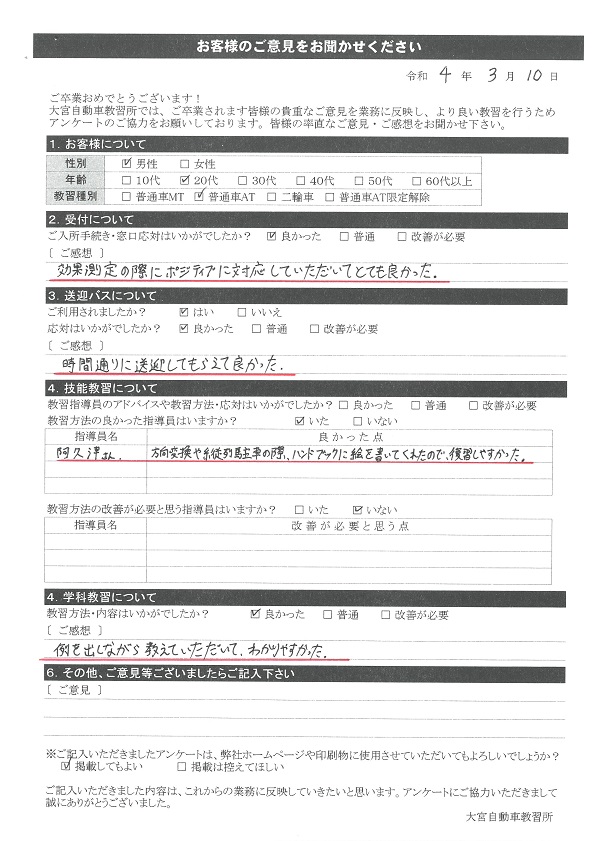 お客様のご意見をお聞かせください
令和 4 年 3 月 10 日
ご卒業おめでとうございます！
大宮自動車教習所では、ご卒業されます皆様の貴重なご意見を業務に反映し、より良い教習を行うため
アンケートのご協力をお願いしております。皆様の率直なご意見・ご感想をお聞かせ下さい。
1. お客様について
性別 ☑ 男性 □ 女性
年齢 □ 10代 ☑ 20代 □ 30代 □ 40代 □ 50代 □ 60代以上
教習種別 □ 普通車MT ☑ 普通車AT □ 二輪車 □ 普通車AT限定解除
2. 受付について
ご入所手続き・窓口応対はいかがでしたか？ ☑ 良かった □ 普通 □ 改善が必要
〔 ご感想 〕
効果測定の際にポジティブに対応していただいてとても良かった。
3. 送迎バスについて
ご利用されましたか？ ☑ はい □ いいえ
応対はいかがでしたか？ ☑ 良かった □ 普通 □ 改善が必要
〔 ご感想 〕
時間通りに送迎してもらえて良かった。
4. 技能教習について
教習指導員のアドバイスや教習方法・応対はいかがでしたか？ □ 良かった □ 普通 □ 改善が必要
教習方法の良かった指導員はいますか？ ☑ いた □ いない
指導員名 良かった点
阿久津さん 方向変換や縦列駐車の際、ハンドブックに絵を書いてくれたので、復習しやすかった。
教習方法の改善が必要と思う指導員はいますか？ □ いた ☑ いない
指導員名 改善が必要と思う点
4. 学科教習について
教習方法・内容はいかがでしたか？ ☑ 良かった □ 普通 □ 改善が必要
〔 ご感想 〕
例を出しながら教えていただいて、わかりやすかった。
6. その他、ご意見等ございましたらご記入下さい
〔 ご意見 〕
※ご記入いただきましたアンケートは、弊社ホームページや印刷物に使用させていただいてもよろしいでしょうか？
☑ 掲載してもよい □ 掲載は控えてほしい
ご記入いただきました内容は、これからの業務に反映していきたいと思います。アンケートにご協力いただきまして
誠にありがとうございました。
大宮自動車教習所